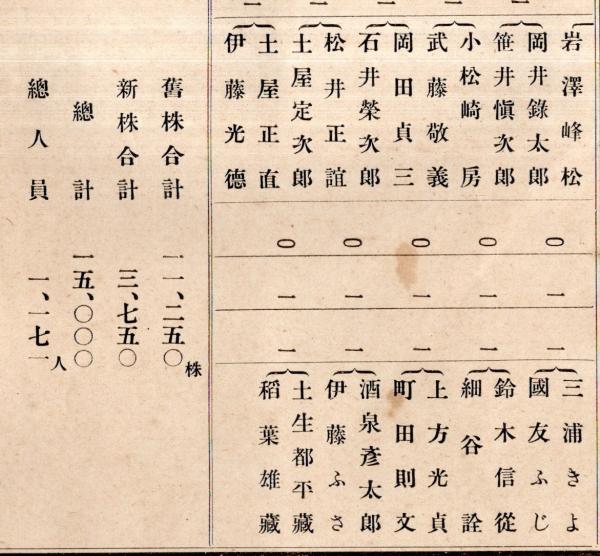 一 一 一 一 一
岩澤峰松
岡井錄太郎
笹井愼次郎
小松崎房
武藤敬義
岡田貞三
石井榮次郎
松井正誼
土屋定次郎
土屋正直
伊藤光德
〇 〇 〇 〇 〇
一 一 一 一 一
一 一 一 一 一
三浦きよ
國友ふじ
鈴木信從
細谷詮
上方光貞
町田則文
酒泉彥太郎
伊藤ふさ
土生都平藏
稻葉雄藏
舊株合計 一一、二五〇株
新株合計 三、七五〇
總計 一五、〇〇〇
總人員 一、一七一人